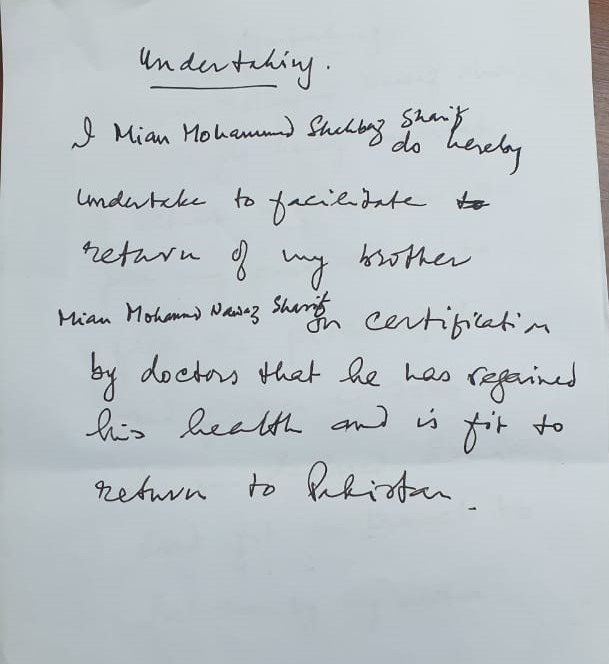 Undertaking.
I Mian Mohammad Shehbaz Sharif
do hereby
undertake to facilitate to
return of my brother
Mian Mohammad Nawaz Sharif
on certification
by doctors that he has regained
his health and is fit to
return to Pakistan.